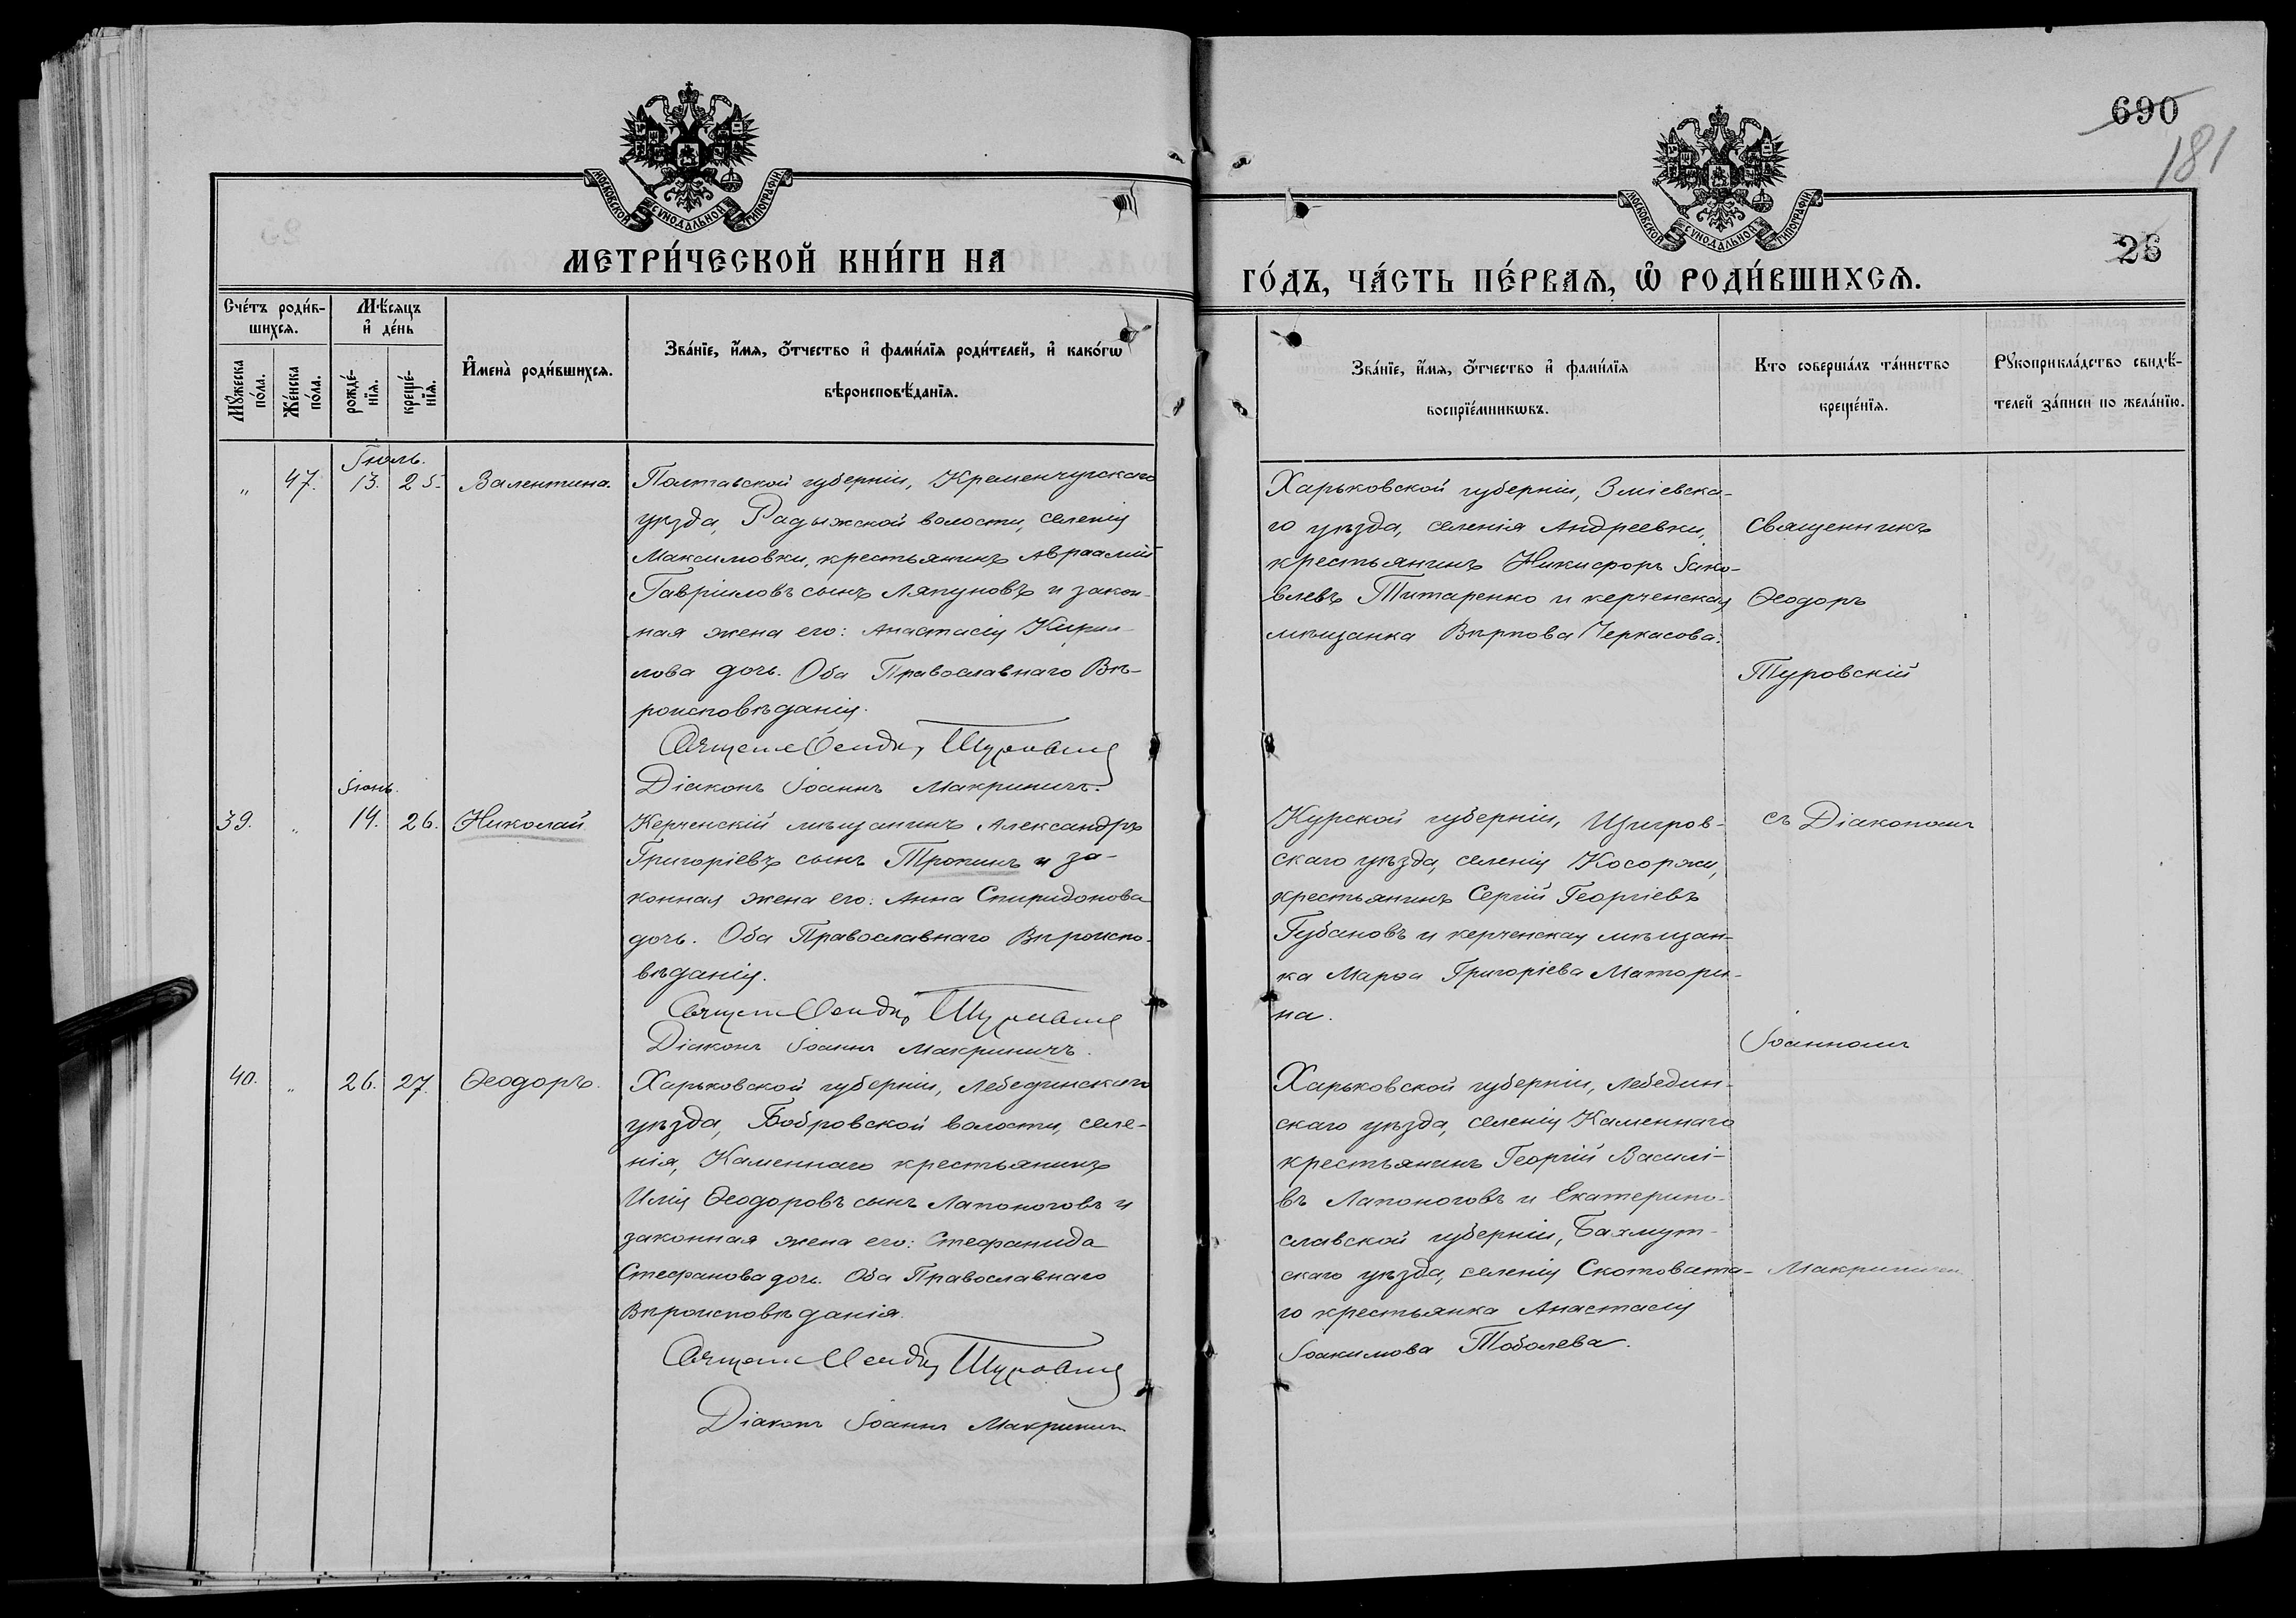 690
181
МОСКОВСКОЙ СУНОДАЛЬНОЙ ТИПОГРАФІИ
МОСКОВСКОЙ СУНОДАЛЬНОЙ ТИПОГРАФІИ
26
МЕТРИ́ЧЕСКОЙ КНИ́ГИ НА
ГО́ДЪ, ЧА́СТЬ ПЕ́РВАѦ, Ѡ РОДИ́ВШИХСѦ.
Сче́тъ роди́в-
шихсѧ.
Мѣ́сяцъ
и҆ де́нь
Мꙋ́жеска
по́ла.
Же́нска
по́ла.
рожде́-
нїѧ.
креще́-
нїѧ.
И҆мена̀ роди́вшихсѧ.
Зва́нїе, и҆́мѧ, ѻ҆́тчество и҆ фами́лїѧ роди́телей, и҆ како́гѡ
вѣроисповѣ́данїѧ.
Зва́нїе, и҆́мѧ, ѻ҆́тчество и҆ фами́лїѧ
воспрїе́мникѡвъ.
Кто соверша́лъ та́инство
креще́нїѧ.
Рꙋкоприкла́дство свидѣ́-
телей за́писи по жела́нїю.
Іюль.
" 47. 13. 25. Валентина.
Полтавской губерніи, Кременчугскаго
уѣзда, Радыжской волости, селенія
Максимовки, крестьянинъ Авраамій
Гавріиловъ сынъ Ляпуновъ и закон-
ная жена его: Анастасія Кирил-
лова дочь. Оба Православнаго Вѣ-
роисповѣданія.
Діаконъ Іоаннъ Макриничъ.
Харьковской губерніи, Зміевска-
го уѣзда, селенія Андреевки,
крестьянинъ Никифоръ Іако-
влевъ Титаренко и керченская
мѣщанка Черкасова.
Священникъ
Ѳеодоръ
Туровскій
Іюнь.
39. " 14. 26. Николай
Керченскій мѣщанинъ Александръ
Григоріевъ сынъ Тропинъ и за-
конная жена его: Анна Спиридонова
дочь. Оба Православнаго Вѣроиспо-
вѣданія.
Діаконъ Іоаннъ Макриничъ.
Курской губерніи, Щигров-
скаго уѣзда, селенія Косоржи,
крестьянинъ Сергій Георгіевъ
Губановъ и керченская мѣщан-
ка Марѳа Григоріева Матори-
на.
съ Діакономъ
Іоанномъ
40. " 26. 27. Ѳеодоръ.
Харьковской губерніи, Лебединскаго
уѣзда, Бобровской волости, селе-
нія, Каменнаго крестьянинъ
Илія Ѳеодоровъ сынъ Лапоноговъ и
законная жена его: Стефанида
Стефанова дочь. Оба Православнаго
Вѣроисповѣданія.
Діаконъ Іоаннъ Макриничъ
Харьковской губерніи, Лебедин-
скаго уѣзда, селенія Каменнаго
крестьянинъ Георгій Василі-
въ Лапоноговъ и Екатерино-
славской губерніи, Бахмут-
скаго уѣзда, селенія Скотовата-
го крестьянка Анастасія
Іоакимова Тоболева.
Макриничем